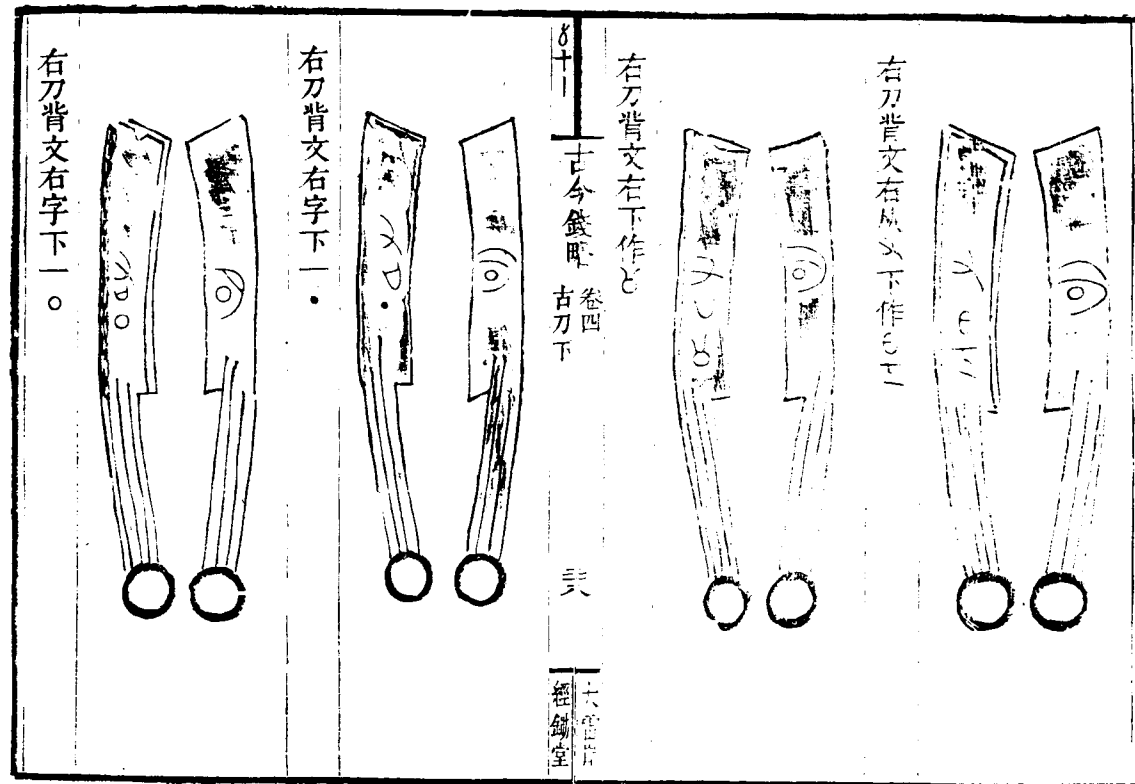 右刀背文右从㐅下作
右刀背文右下作
古今錢略 卷四 古刀下
大雷岸
經鋤堂
右刀背文右字下一•
右刀背文右字下一○